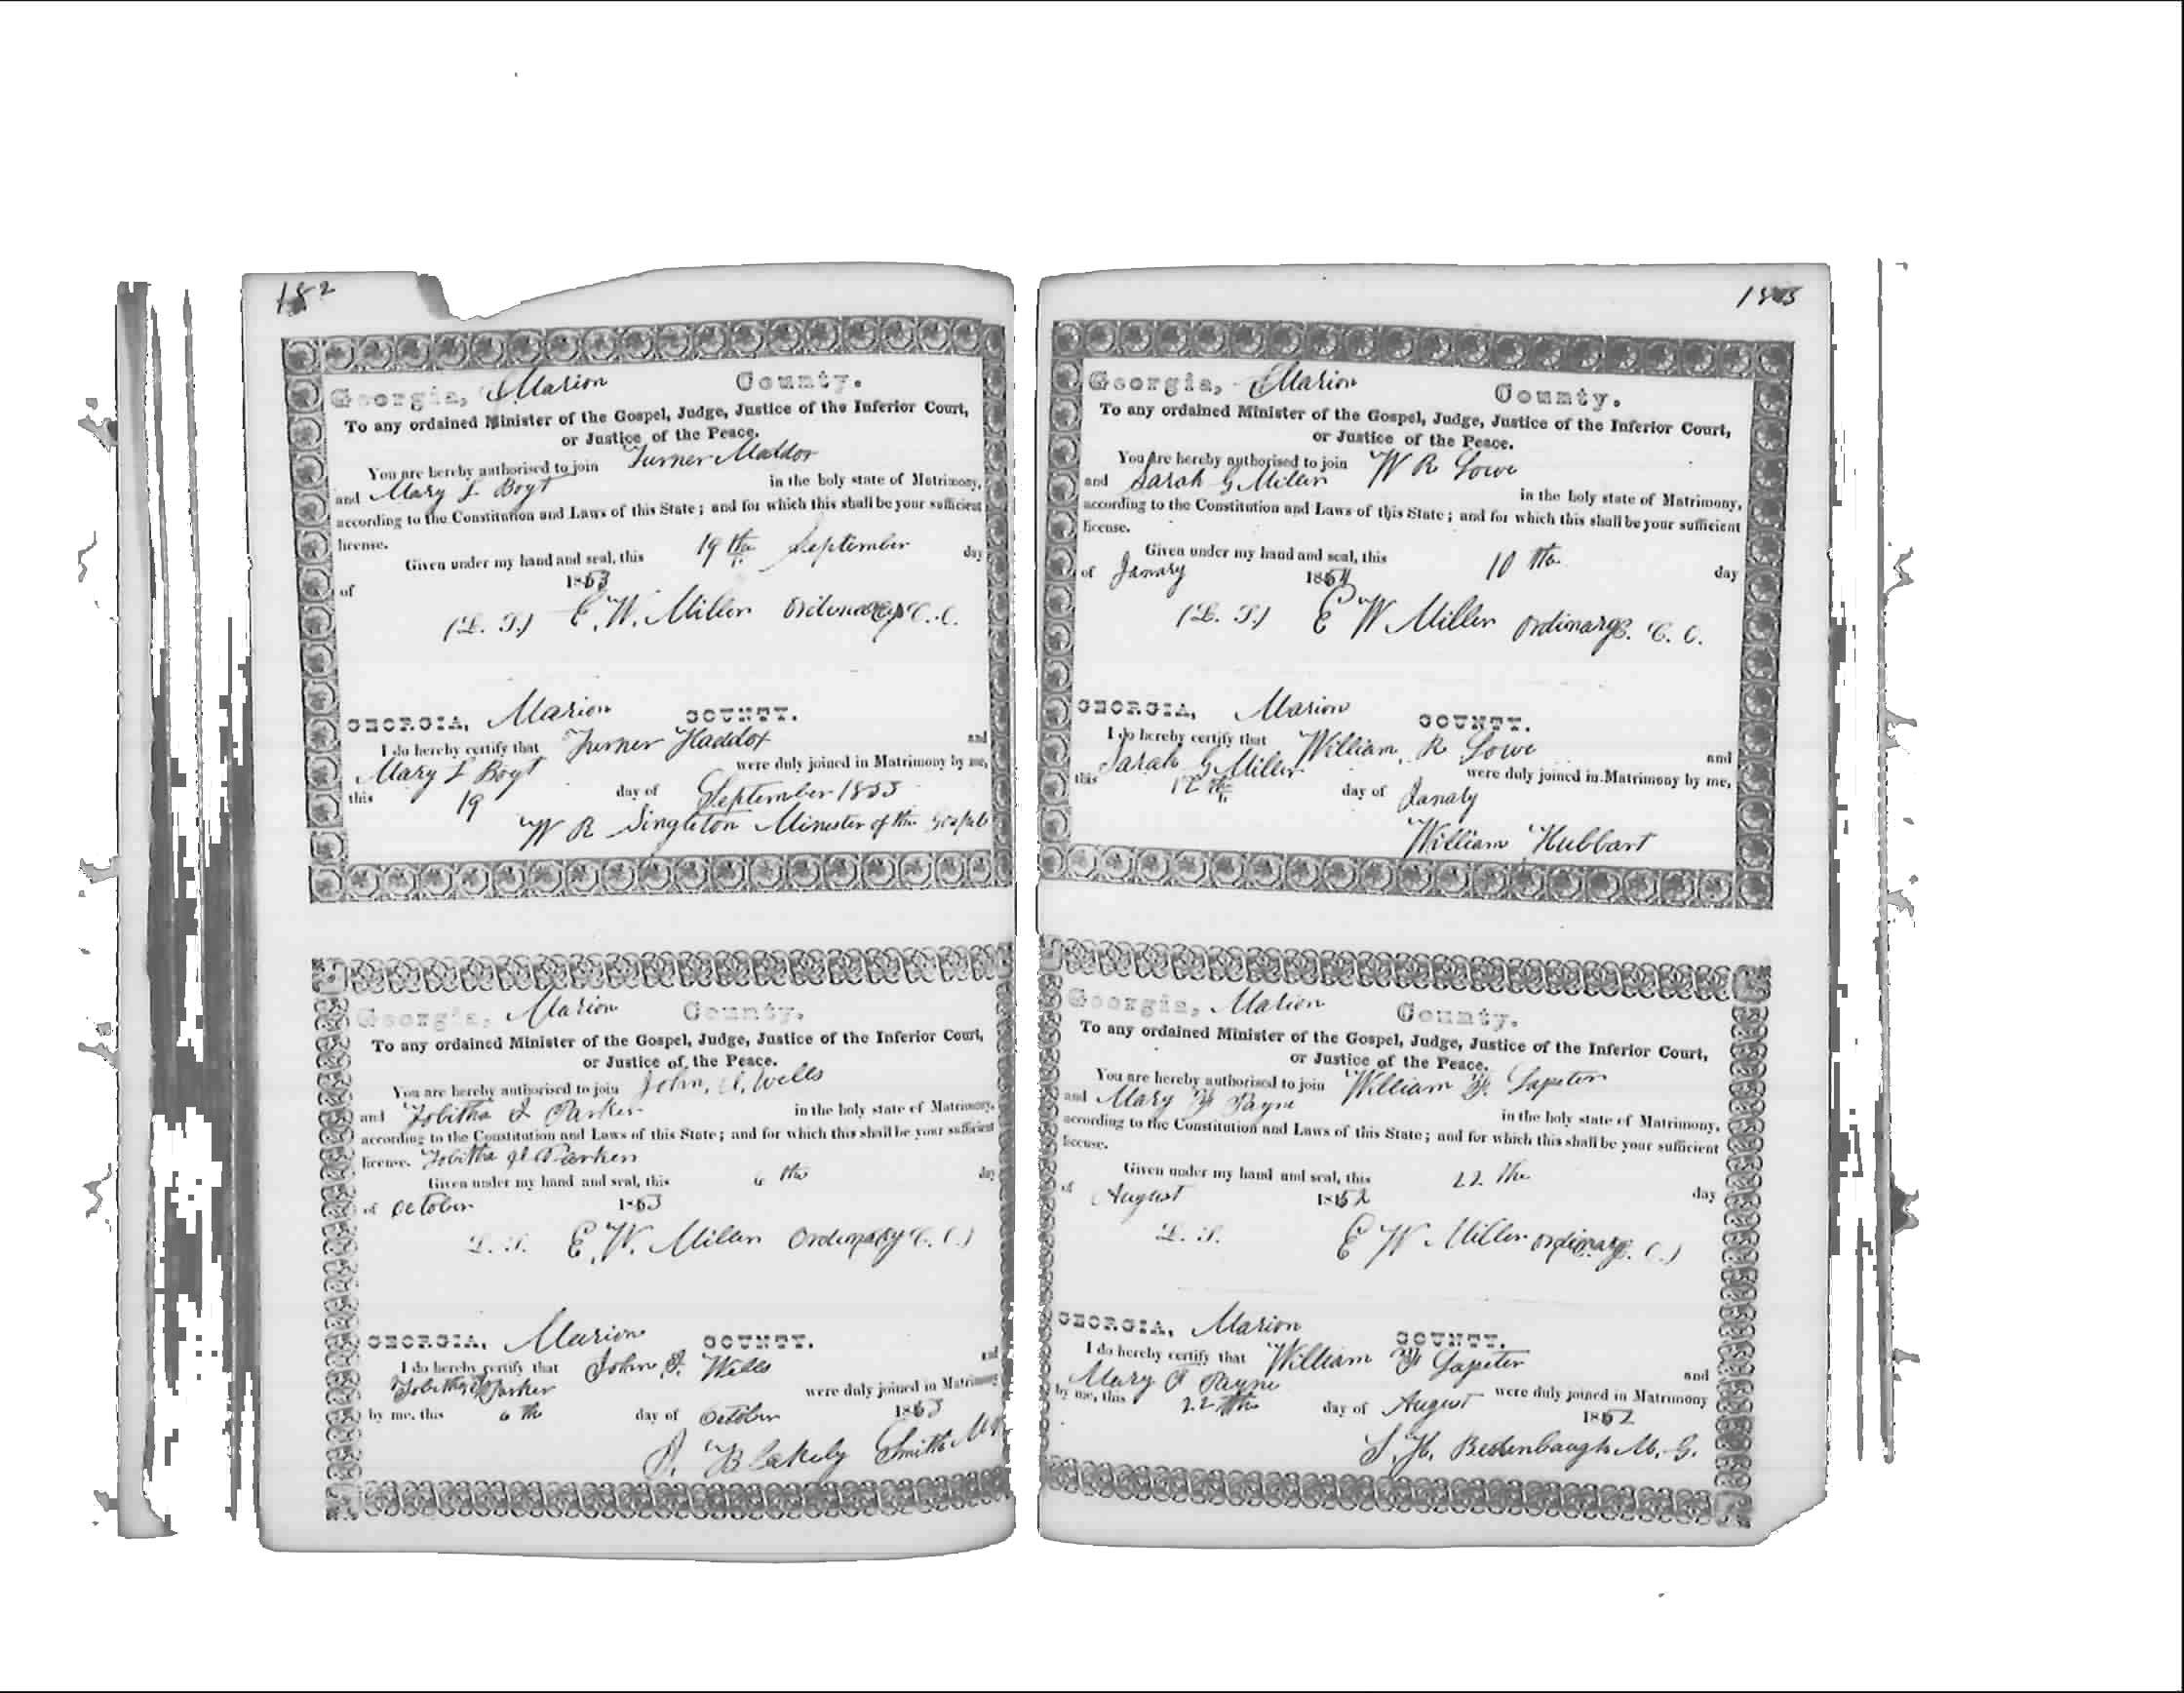 182
Georgia, Marion County.
To any ordained Minister of the Gospel, Judge, Justice of the Inferior Court,
or Justice of the Peace.
You are hereby authorised to join Turner Maddox
and Mary L Boyt in the holy state of Matrimony,
according to the Constitution and Laws of this State; and for which this shall be your sufficient
license.
Given under my hand and seal, this 19th September day
of 1853
(L. S.) E. W. Miller Ordinary C. C.
GEORGIA, Marion COUNTY.
I do hereby certify that Turner Haddox and
Mary L Boyt were duly joined in Matrimony by me,
this 19 day of September 1853
W R Singleton Minester of the Gospel
Georgia, Marion County.
To any ordained Minister of the Gospel, Judge, Justice of the Inferior Court,
or Justice of the Peace.
You are hereby authorised to join John, Wells
and Tobitha J Parker in the holy state of Matrimony,
according to the Constitution and Laws of this State; and for which this shall be your sufficient
license. Tobitha Parker
Given under my hand and seal, this 6 th day
of October 1853
L. S. E. W. Miller Ordinary C. C.)
GEORGIA, Marion COUNTY.
I do hereby certify that John Wells and
Tobitha Parker were duly joined in Matrimony
by me, this 6 th day of October 1853
Blakely Smith M G
183
Georgia, Marion County.
To any ordained Minister of the Gospel, Judge, Justice of the Inferior Court,
or Justice of the Peace.
You are hereby authorised to join W R Lowe
and Sarah G Miller in the holy state of Matrimony,
according to the Constitution and Laws of this State; and for which this shall be your sufficient
license.
Given under my hand and seal, this 10 th day
of Janury 1854
(L. S.) E W Miller Ordinary C. C.
GEORGIA, Marion COUNTY.
I do hereby certify that William, R Lowe and
Sarah G Miller were duly joined in Matrimony by me,
this 12 th day of Janaly
William Hubbart
Georgia, Marion County.
To any ordained Minister of the Gospel, Judge, Justice of the Inferior Court,
or Justice of the Peace.
You are hereby authorised to join William F. Lapeter
and Mary F Payne in the holy state of Matrimony,
according to the Constitution and Laws of this State; and for which this shall be your sufficient
license.
Given under my hand and seal, this 22 th day
of August 1852
L. S. E W Miller Ordinary C. C.)
GEORGIA, Marion COUNTY.
I do hereby certify that William F Lapeter and
Mary F Payne were duly joined in Matrimony
by me, this 22 th day of August 1852
S. H. Bedenbaugh M. G.